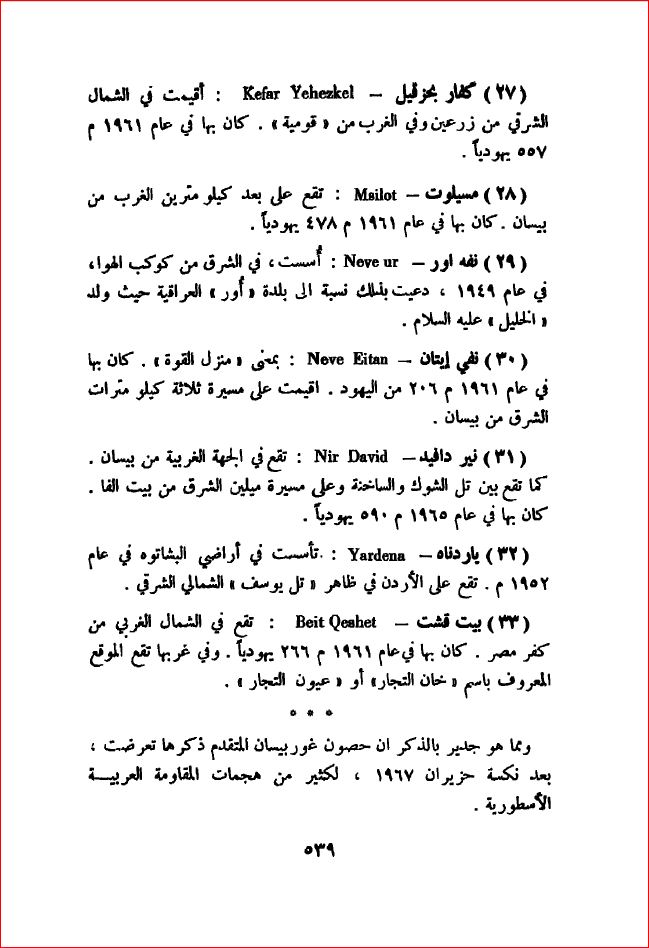 (٢٧) كفار يحزقيل – Kefar Yehezkel : أقيمت في الشمال
الشرقي من زرعين وفي الغرب من « قومية » . كان بها في عام ١٩٦١ م
٥٥٧ يهودياً .
(٢٨) مسيلوت – Msilot : تقع على بعد كيلو مترين الغرب من
بيسان . كان بها في عام ١٩٦١ م ٤٧٨ يهودياً .
(٢٩) نفه اور – Neve ur : أُسست، في الشرق من كوكب الهوا،
في عام ١٩٤٩ ، دعيت بذلك نسبة الى بلدة « أور » العراقية حيث ولد
« الخليل » عليه السلام .
(٣٠) نفي إيتان – Neve Eitan : بمعنى « منزل القوة » . كان بها
في عام ١٩٦١ م ٢٠٦ من اليهود . اقيمت على مسيرة ثلاثة كيلو مترات
الشرق من بيسان .
(٣١) نير دافيد – Nir David : تقع في الجهة الغربية من بيسان .
كما تقع بين تل الشوك والساخنة وعلى مسيرة ميلين الشرق من بيت الفا .
كان بها في عام ١٩٦٥ م ٥٩٠ يهودياً .
(٣٢) ياردناه – Yardena : تأسست في أراضي البشاتوه في عام
١٩٥٢ م . تقع على الأردن في ظاهر « تل يوسف » الشمالي الشرقي .
(٣٣) بيت قشت – Beit Qeshet : تقع في الشمال الغربي من
كفر مصر . كان بها في عام ١٩٦١ م ٢٦٦ يهودياً . وفي غربها تقع الموقع
المعروف باسم « خان التجار» أو « عيون التجار » .
* * *
ومما هو جدير بالذكر ان حصون غور بيسان المتقدم ذكرها تعرضت ،
بعد نكسة حزيران ١٩٦٧ ، لكثير من هجمات المقاومة العربيــة
الأسطورية .
٥٣٩